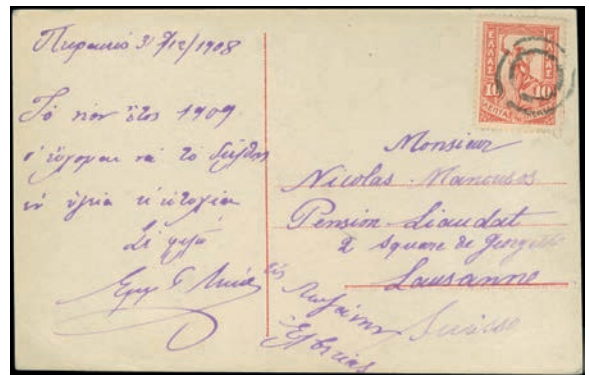 Πειραιεύς 31/12/1908
Τό νέον ἔτος 1909
σ' εὔχομαι νά τό διέλθῃς
ἐν ὑγείᾳ κ' εὐτυχίᾳ
Σέ φιλῶ
ΕΛΛΑΣ
10 10
ΛΕΠΤΑ
Monsieur
Nicolas Manousos
Pension Liaudat
2 Square de Georgette
Lausanne
Suisse
εἰς
Λωζάννην
Ἑλβετίας